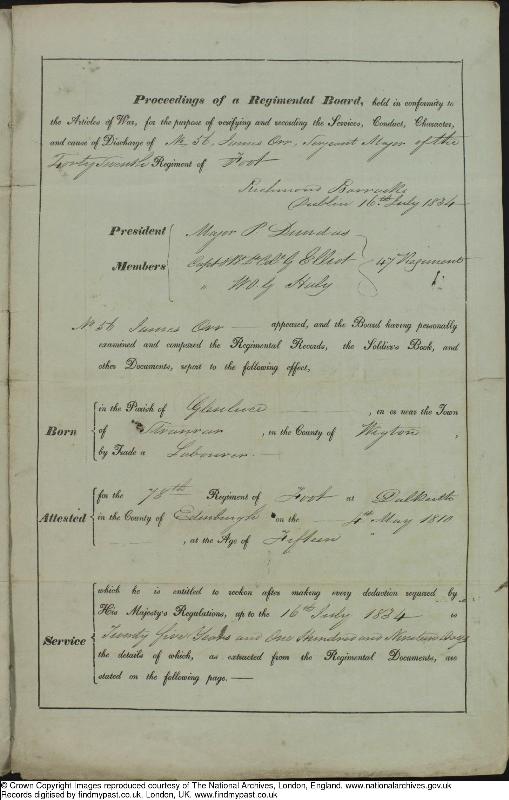 Proceedings of a Regimental Board, held in conformity to
the Articles of War, for the purpose of verifying and recording the Services, Conduct, Character,
and cause of Discharge of No 56 James Orr, Serjeant Major of the
Forty Seventh Regiment of Foot
Richmond Barracks
Dublin 16th July 1834
President Major P Dundas
Members Capt & Bt Lt Col G Elliot 47 Regiment
" W O G Haly
No 56 James Orr appeared, and the Board having personally
examined and compared the Regimental Records, the Soldier's Book, and
other Documents, report to the following effect,
Born
in the Parish of Glenluce , in or near the Town
of Stranrar , in the County of Wigton ,
by Trade a Labourer.
Attested
for the 78th Regiment of Foot at Dalkeith
in the County of Edinburgh on the 4th May 1810
, at the Age of Fifteen "
Service
which he is entitled to reckon after making every deduction required by
His Majesty's Regulations, up to the 16th July 1834 is
Twenty five Years and One Hundred and Nineteen days
the details of which, as extracted from the Regimental Documents, are
stated on the following page.
© Crown Copyright Images reproduced courtesy of The National Archives, London, England. www.nationalarchives.gov.uk
Records digitised by findmypast.co.uk, London, UK. www.findmypast.co.uk